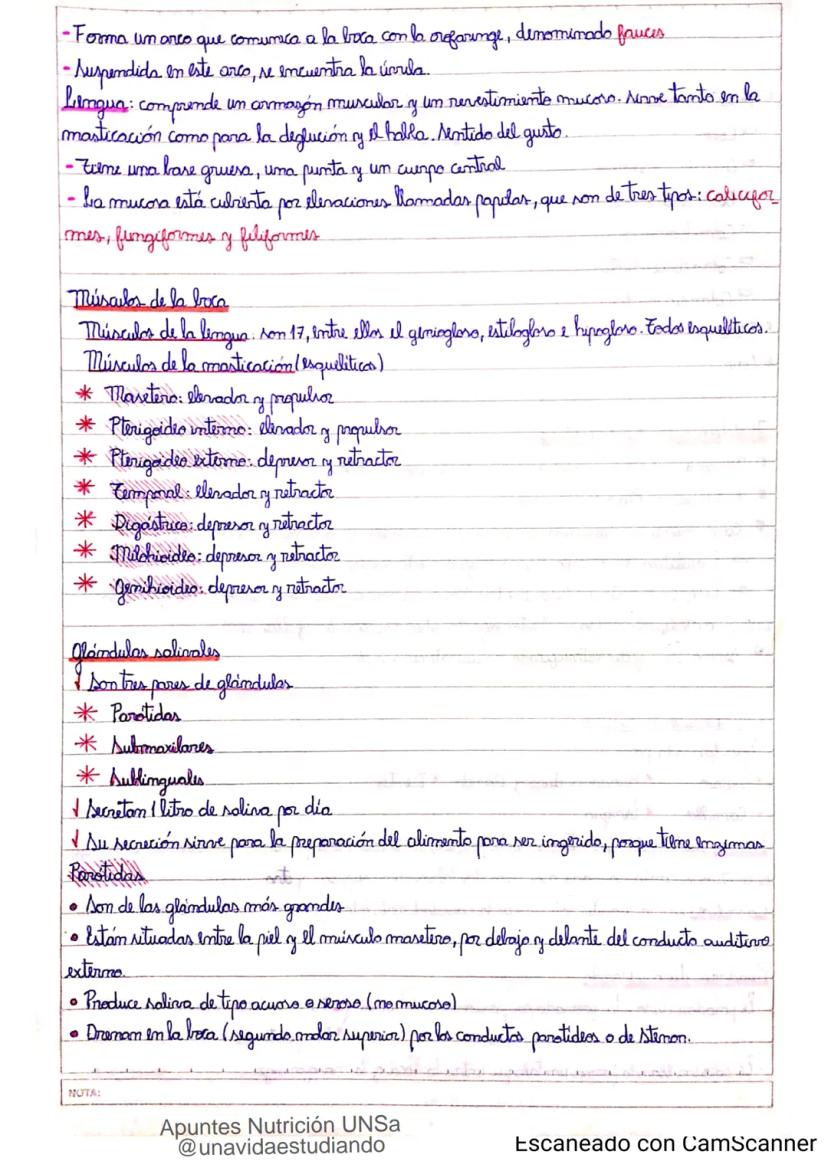 - Forma un arco que comunica a la boca con la orofaringe, denominado fauces
- Suspendida en este arco, se encuentra la úvula.
Lengua: comprende un armazón muscular y un revestimiento mucoso. Sirve tanto en la
masticación como para la deglución y el habla. Sentido del gusto.
- Tiene una base gruesa, una punta y un cuerpo central
- La mucosa está cubierta por elevaciones llamadas papilas, que son de tres tipos: calicifor_
mes, fungiformes y filiformes
Músculos de la boca
Músculos de la lengua: son 17, entre ellos el geniogloso, estilogloso e hipogloso. Todos esqueléticos.
Músculos de la masticación (esqueléticos)
* Masetero: elevador y propulsor
* Pterigoideo interno: elevador y propulsor
* Pterigoideo externo: depresor y retractor
* Temporal: elevador y retractor
* Digástrico: depresor y retractor
* Milohioideo: depresor y retractor
* Genihioideo: depresor y retractor
Glándulas salivales
√ Son tres pares de glándulas
* Parótidas
* Submaxilares
* Sublinguales
√ Secretan 1 litro de saliva por día
√ Su secreción sirve para la preparación del alimento para ser ingerido, porque tiene enzimas
Parótidas
• Son de las glándulas más grandes
• Están situadas entre la piel y el músculo masetero, por debajo y delante del conducto auditivo
externo
• Produce saliva de tipo acuoso o seroso (no mucoso)
• Drenan en la boca (segundo molar superior) por los conductos parotídeos o de Stenon.
NOTA:
Apuntes Nutrición UNSa
@unavidaestudiando
Escaneado con CamScanner